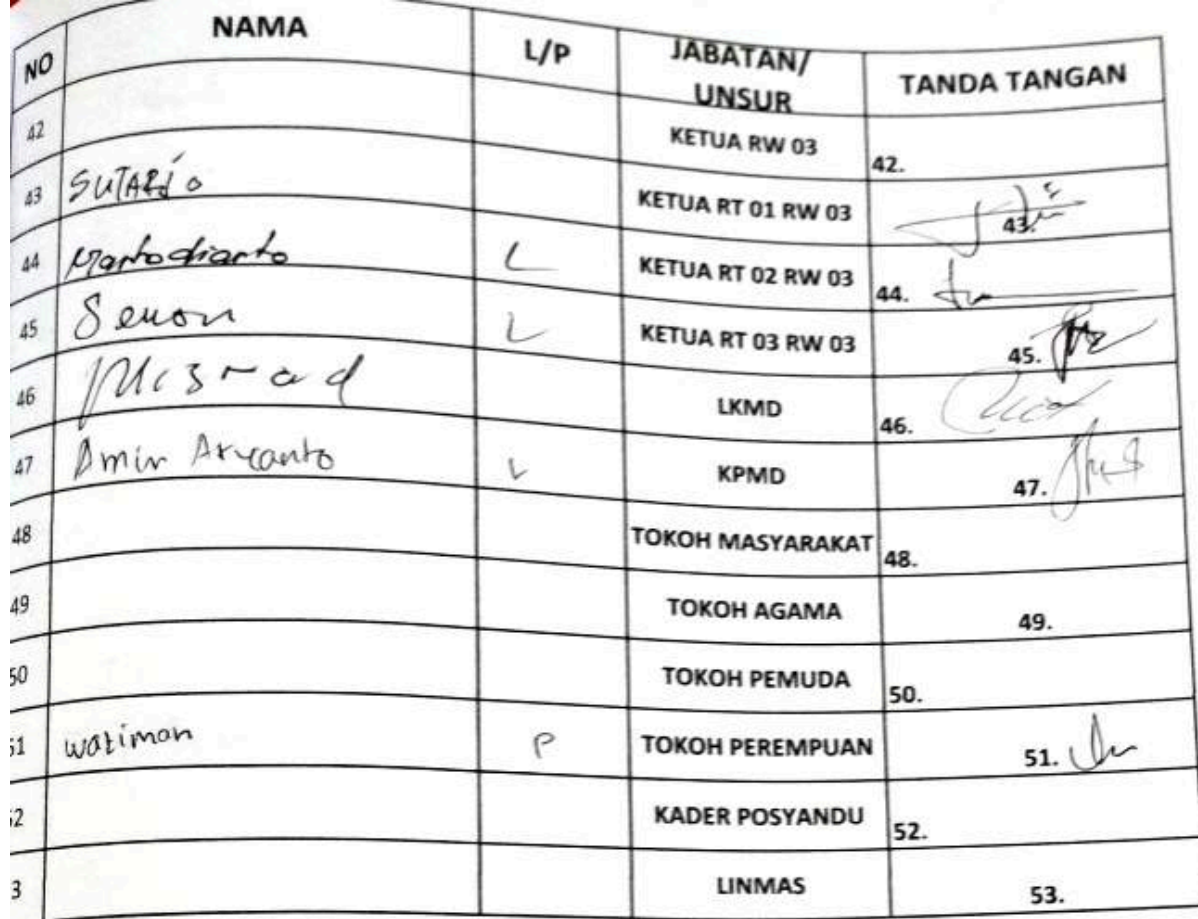 NO NAMA L/P JABATAN/ UNSUR TANDA TANGAN
42 KETUA RW 03 42.
43 SUTARJO KETUA RT 01 RW 03 43.
44 Martodiarto L KETUA RT 02 RW 03 44.
45 Senon L KETUA RT 03 RW 03 45.
46 LKMD 46.
47 Amin Aryanto L KPMD 47.
48 TOKOH MASYARAKAT 48.
49 TOKOH AGAMA 49.
50 TOKOH PEMUDA 50.
51 watimon P TOKOH PEREMPUAN 51.
52 KADER POSYANDU 52.
3 LINMAS 53.